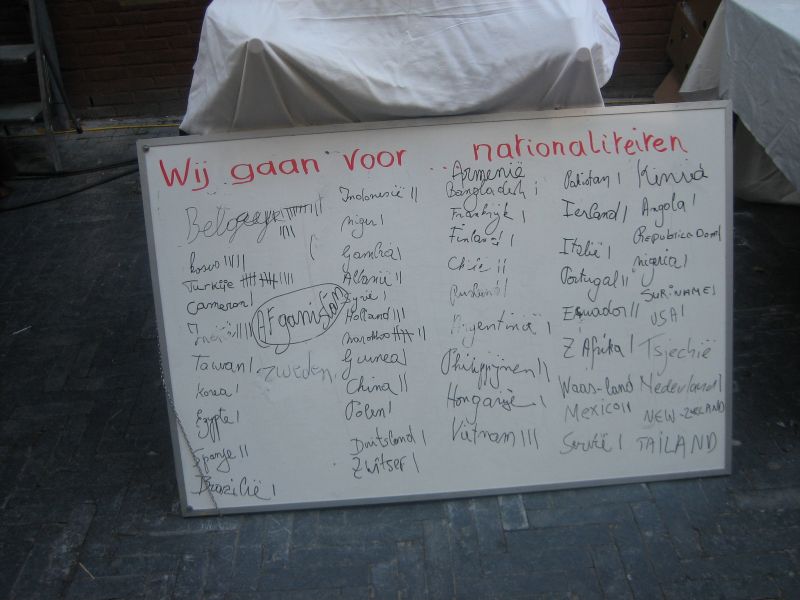 Wij gaan voor nationaliteiten
Kosovo IIIII
Turkije IIII IIII IIII
Cameron I
Taiwan I
Korea I
Egypte I
Spanje II
Brazilië I
AFganistan
Zweden
Indonesië II
niger I
Gambia I
Albanië II
Syrië I
Holland III
marokko IIII II
Guinea I
China II
Polen I
Duitsland I
Zwitser I
Armenië
Bangladesh I
Frankrijk I
Finland I
Chili II
Rusland I
Argentinië I
Philippijnen II
Hongarije I
Viëtnam III
Pakistan I
Ierland I
Italië I
Portugal II
Ecuador II
Z Afrika I
Waas-land
Mexico II
Servië I
Kenia
Angola I
Republica Dom I
nigeria I
SURINAME I
USA I
Tsjechië
Nederland I
NEW-ZEELAND
TAILAND